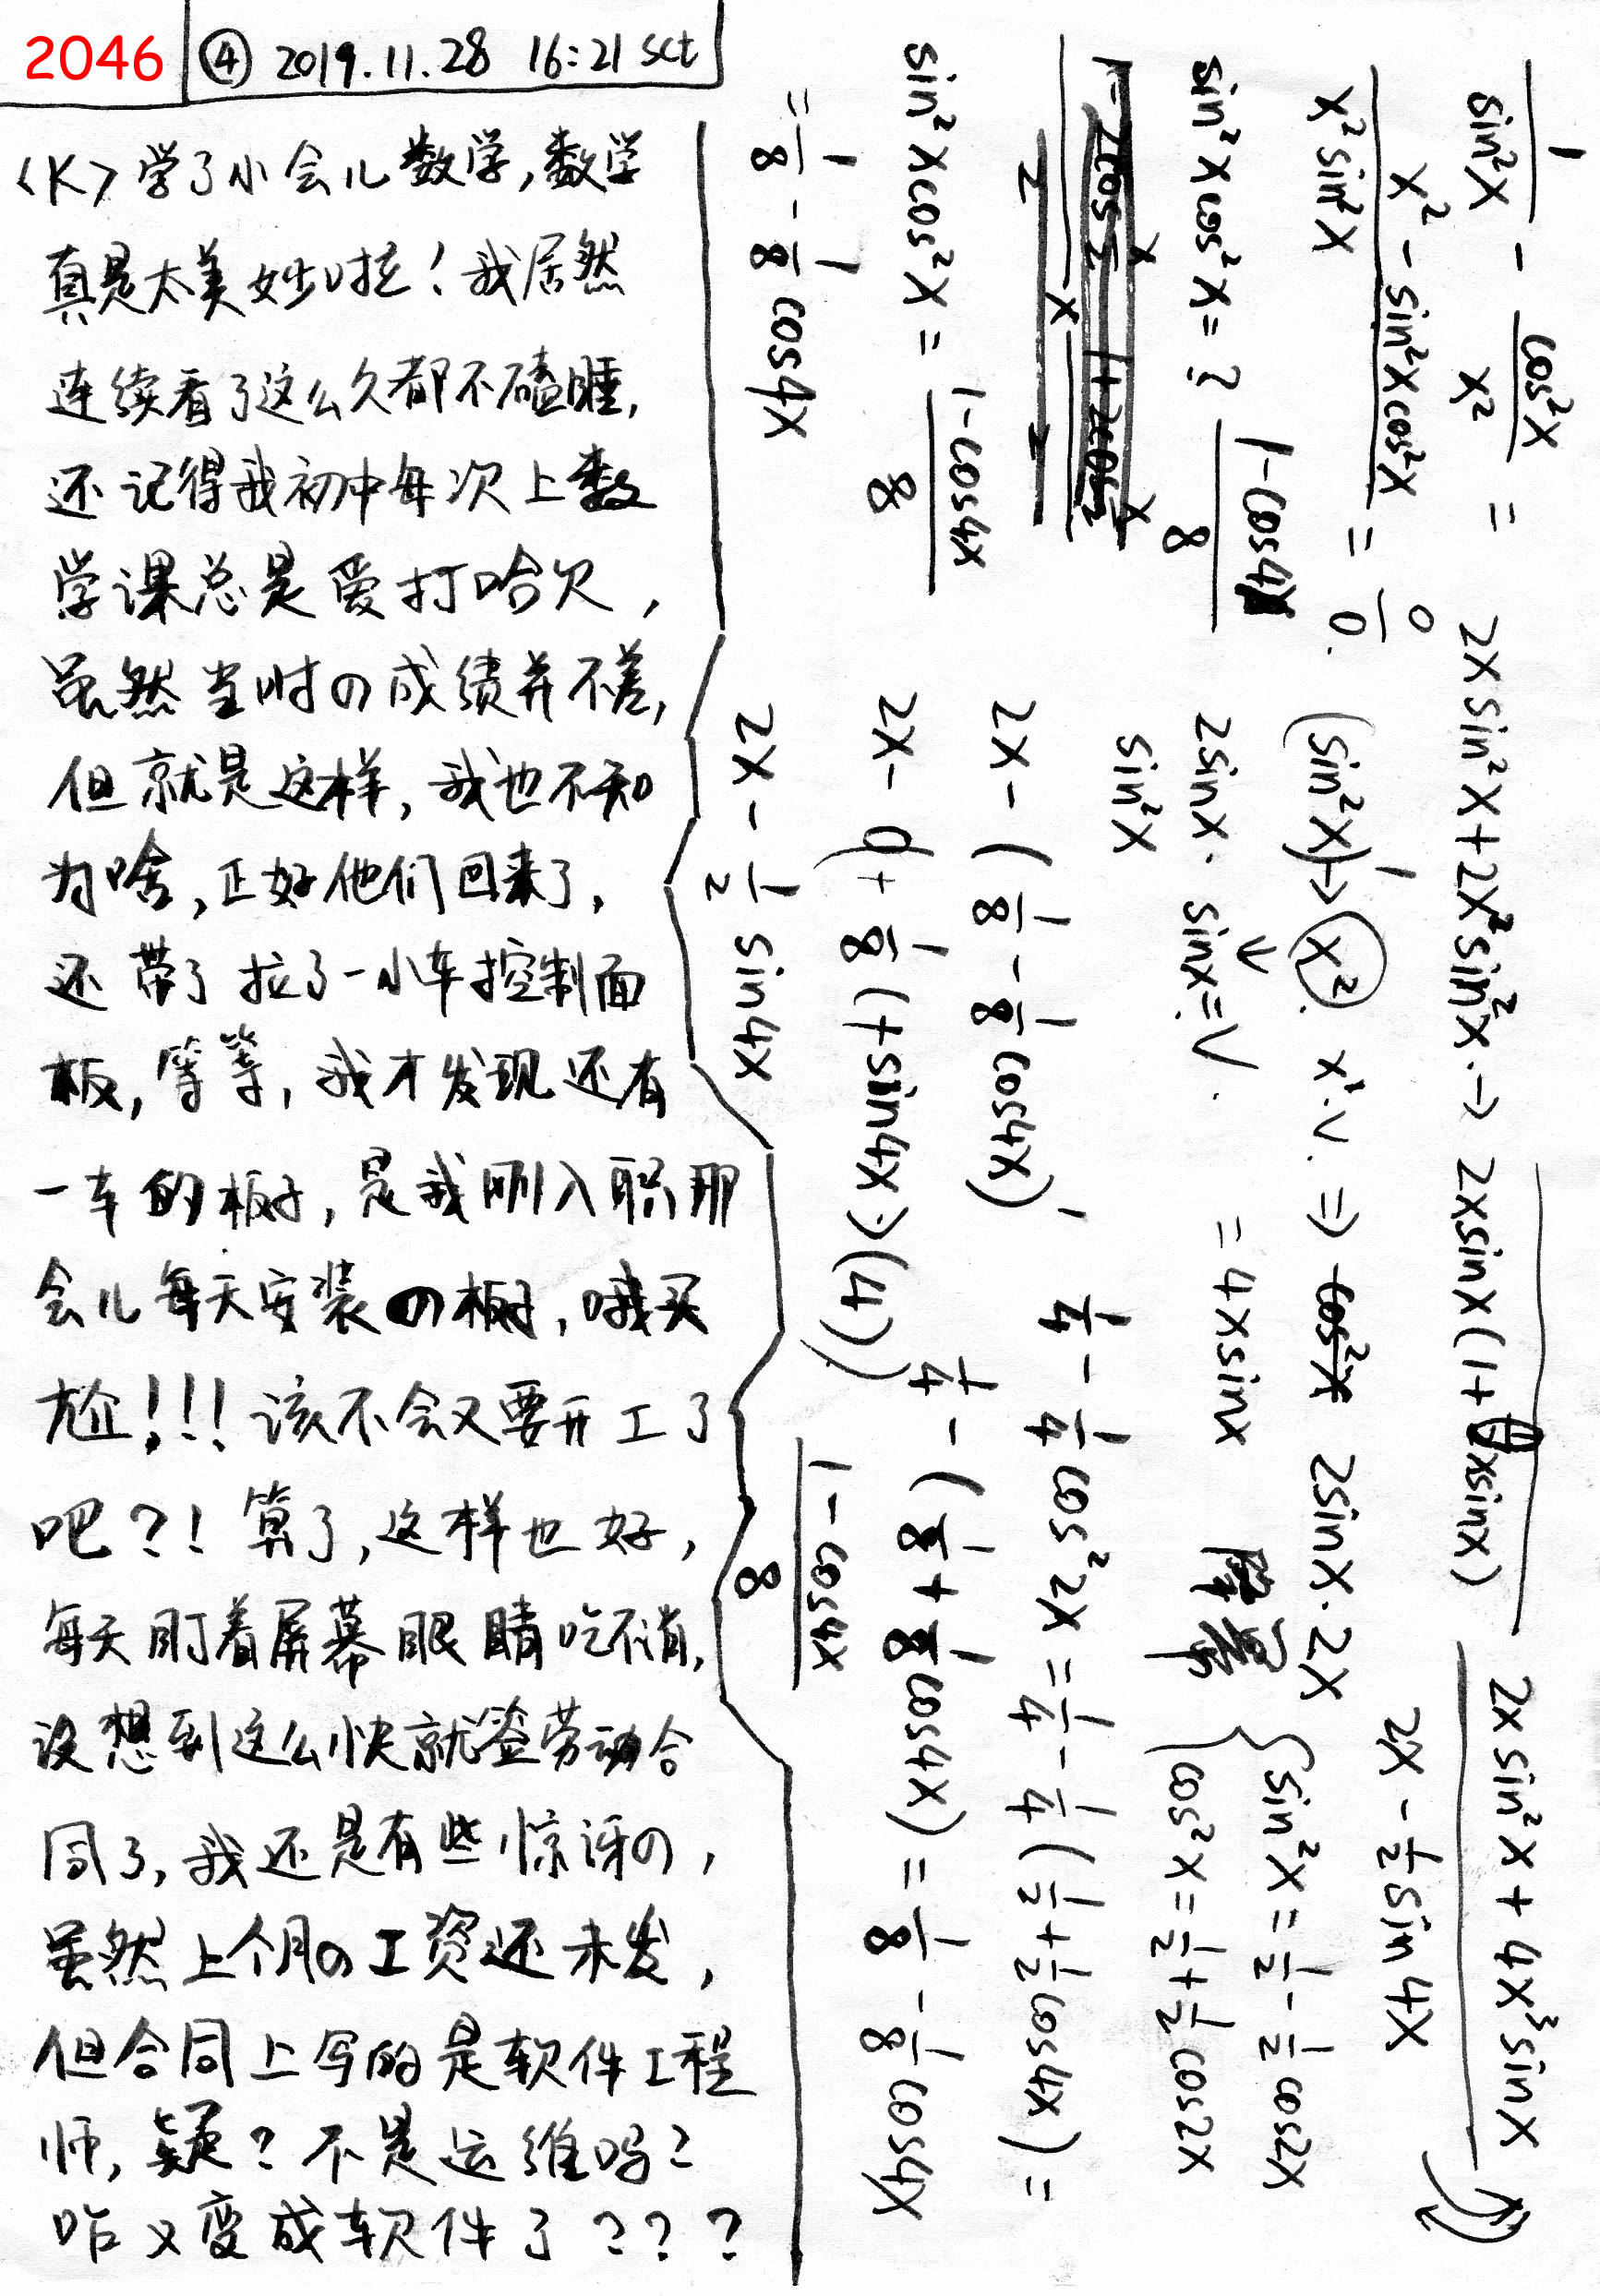 2046 ④ 2019.11.28 16:21 sct
<K>学了小会儿数学,数学
真是太美妙啦!我居然
连续看了这么久都不瞌睡,
还记得我初中每次上数
学课总是爱打哈欠,
虽然当时の成绩并不差,
但就是这样,我也不知
为啥,正好他们回来了,
还带了拉了一小车控制面
板,等等,我才发现还有
一车的板子,是我刚入职那
会儿每天安装の板子,哦买
尬!!!该不会又要开工了
吧?!算了,这样也好,
每天盯着屏幕眼睛吃不消,
没想到这么快就签劳动合
同了,我还是有些惊讶の,
虽然上个月の工资还未发,
但合同上写的是软件工程
师,疑?不是运维吗?
咋又变成软件了???
1/sin²x - cos²x/x² =
(x² - sin²xcos²x)/(x²sin²x) = 0/0.
sin²xcos²x = ? (1-cos4x)/8
sin²xcos²x = (1-cos4x)/8
= 1/8 - 1/8 cos4x
2xsin²x + 2x²sin²x. → 2xsinx(1+xsinx)
(sin²x)' → x². x'.√. ⇒ 2sinx·2x
2sinx·sinx = √. = 4xsinx
sin²x
2x - (1/8 - 1/8 cos4x)'
2x - (0 + 1/8 (+sin4x·)(4))
2x - 1/2 sin4x
2xsin²x + 4x³sinx
2x - 1/2 sin4x
{ sin²x = 1/2 - 1/2 cos2x
cos²x = 1/2 + 1/2 cos2x
1/4 - 1/4 cos²2x = 1/4 - 1/4 (1/2 + 1/2 cos4x) =
1/4 - (1/8 + 1/8 cos4x) = 1/8 - 1/8 cos4x
(1-cos4x)/8